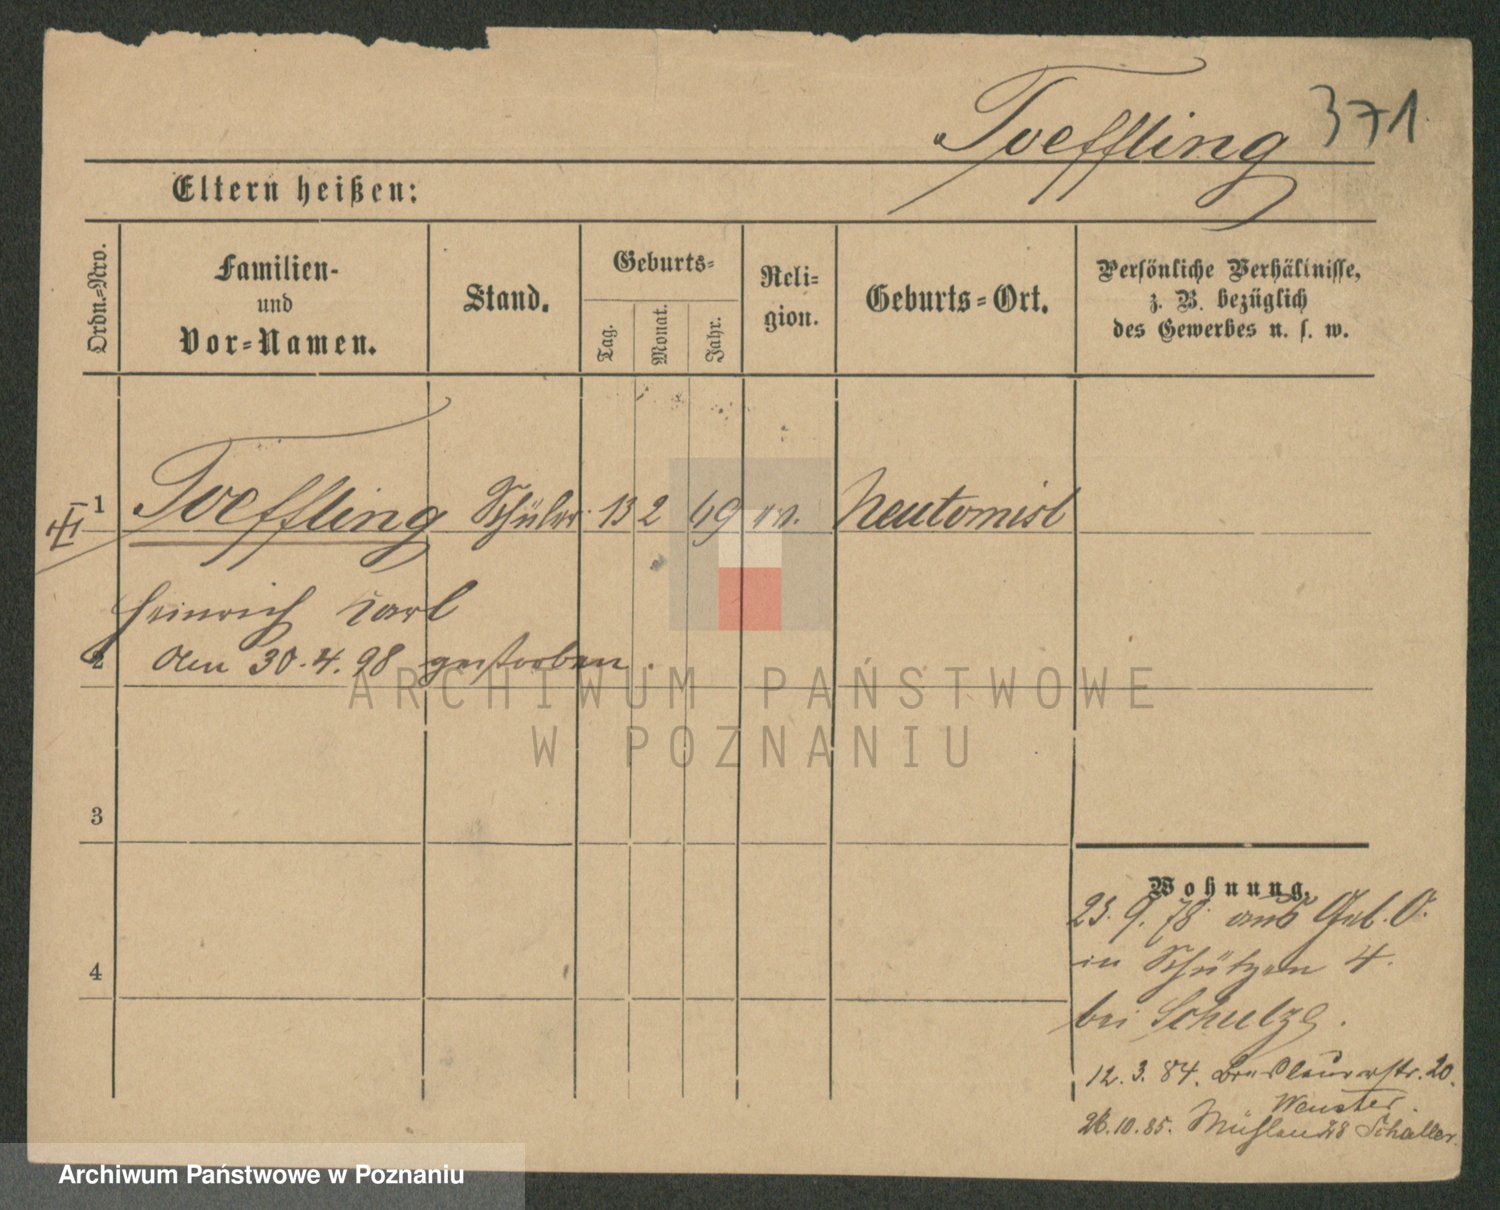 Toeffling 371
Eltern heißen:
Ordn.-Nro.
Familien-
und
Vor-Namen.
Stand.
Geburts-
Tag.
Monat.
Jahr.
Reli-
gion.
Geburts-Ort.
Persönliche Verhältnisse,
z. B. bezüglich
des Gewerbes u. s. w.
1 Toeffling Schüler 13 2 69 ev. Neutomisl
Heinrich Karl
2 den 30.4.98 gestorben.
3
4
Wohnung.
23.9.78 aus Geb. O.
in Schützen 4.
bei Schulze.
12.3.84. Breslauerstr. 20.
Wenster.
26.10.85. Mühlen 28 Schaller.
ARCHIWUM PAŃSTWOWE
W POZNANIU
Archiwum Państwowe w Poznaniu